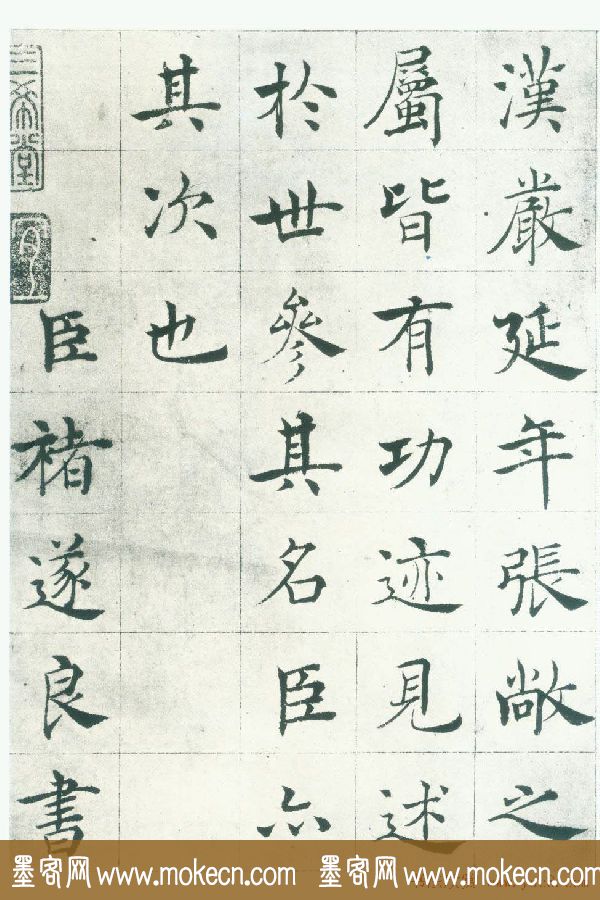 漢嚴延年張敞之
屬皆有功迹見述
於世參其名臣亦
其次也
臣褚遂良書
三希堂
墨客网 www.mokecn.com 墨客网 www.mokecn.com